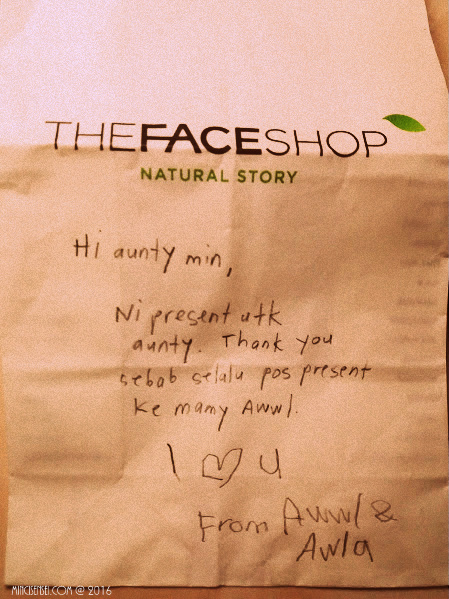 THEFACESHOP
NATURAL STORY
Hi aunty min,
Ni present utk
aunty. Thank you
sebab selalu pos present
ke mamy Awwl.
I ♡ U
From Awwl &
Awla
MINCISENSEI.COM @ 2016